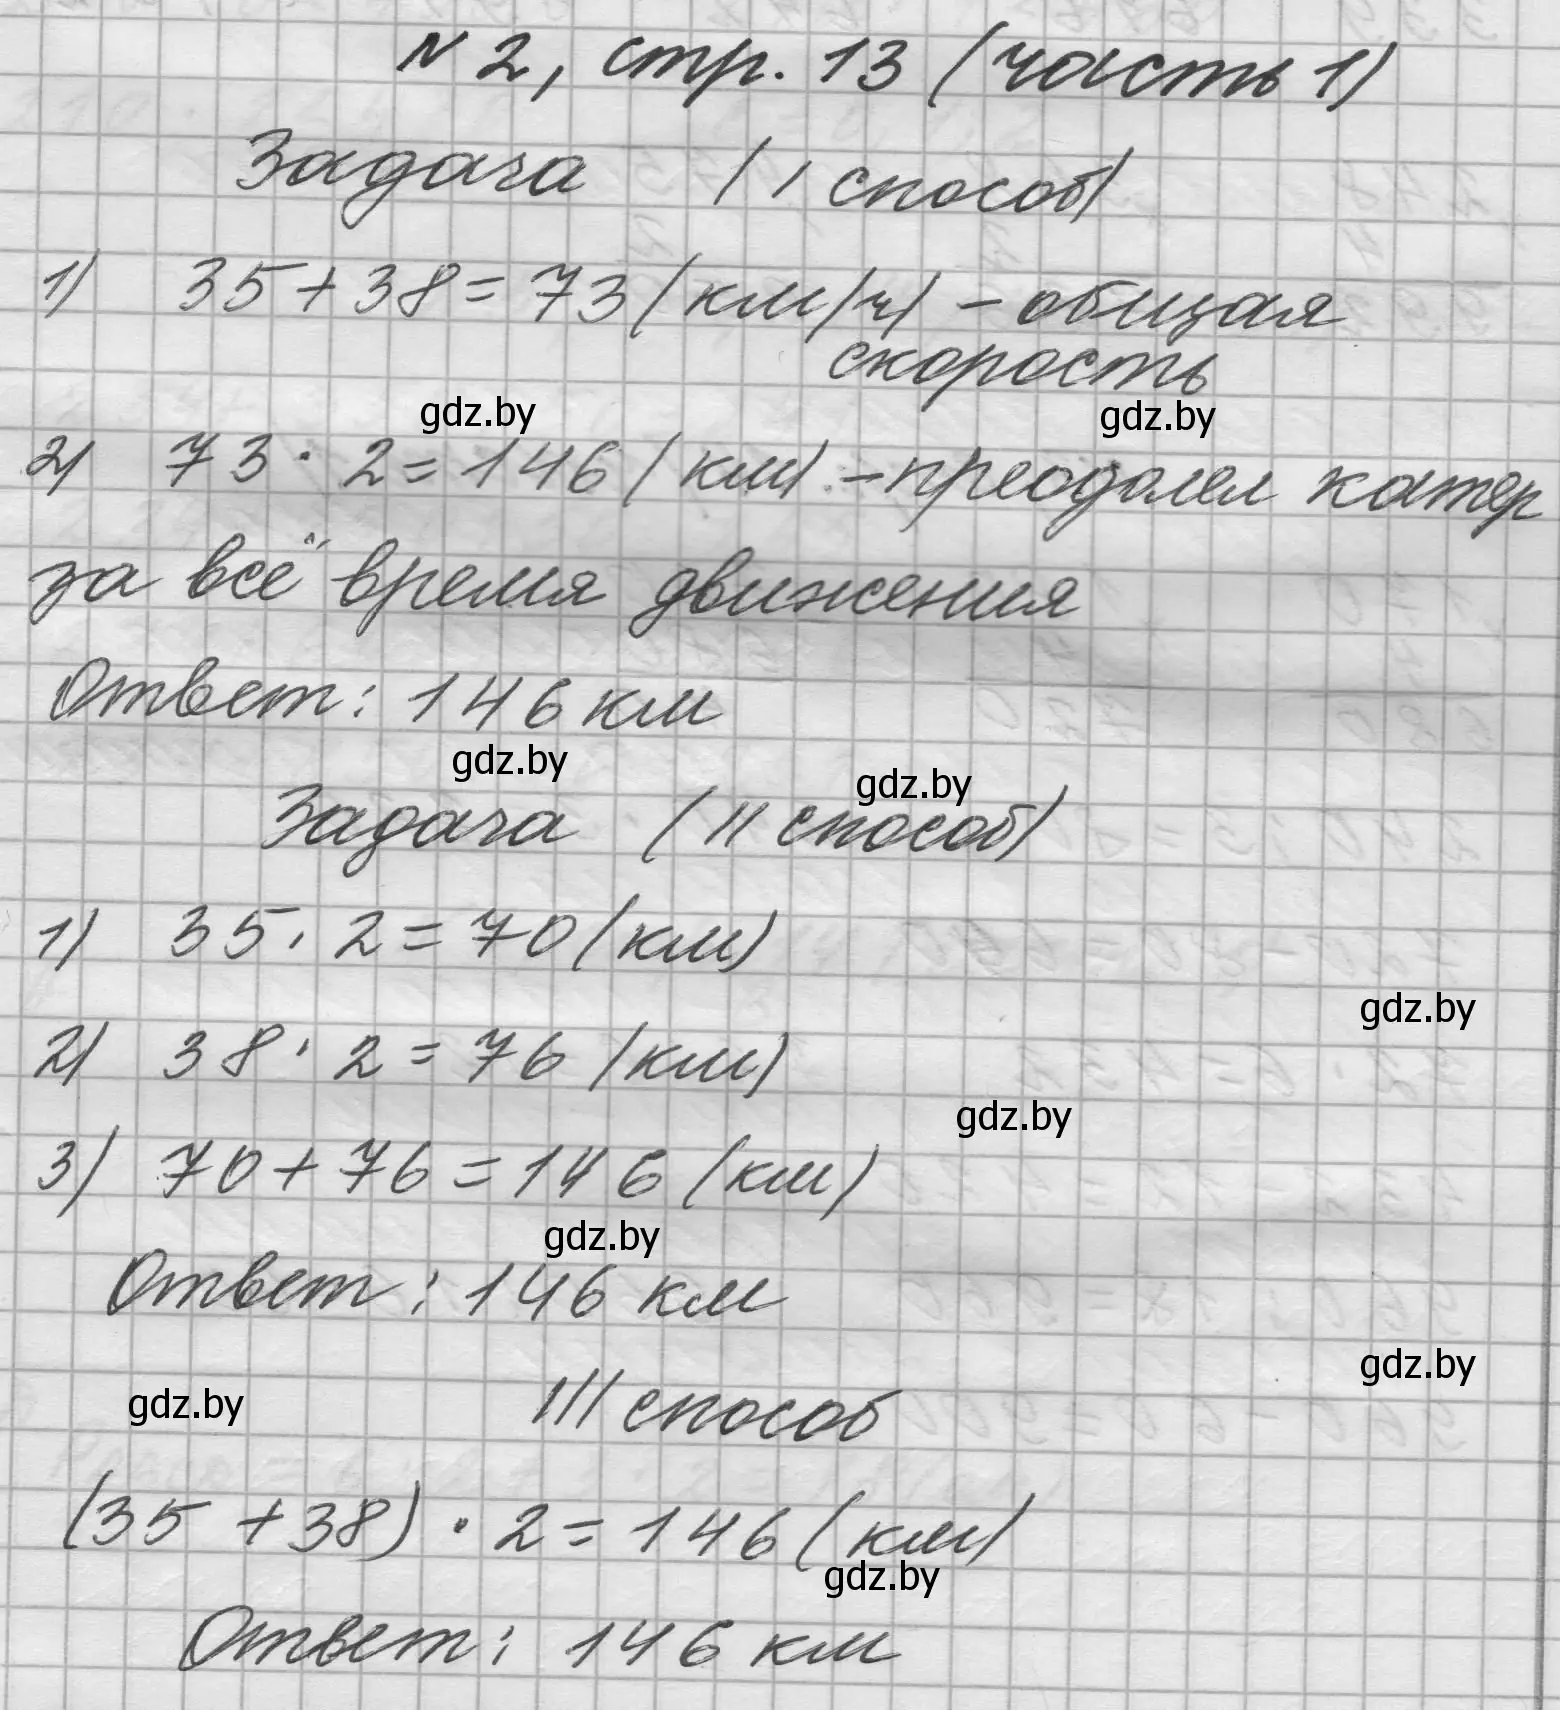 N 2, стр. 13 (часть 1)
Задача (I способ)
1) 35+38=73(км/ч) - общая
скорость
gdz.by gdz.by
2) 73 · 2=146(км) - преодолел катер
за всё время движения
Ответ: 146 км
gdz.by
gdz.by
Задача (II способ)
1) 35 · 2=70(км)
gdz.by
2) 38 · 2=76 (км)
gdz.by
3) 70+76=146 (км)
gdz.by
Ответ: 146 км
gdz.by
gdz.by III способ
(35 +38) · 2=146(км)
gdz.by
Ответ: 146 км